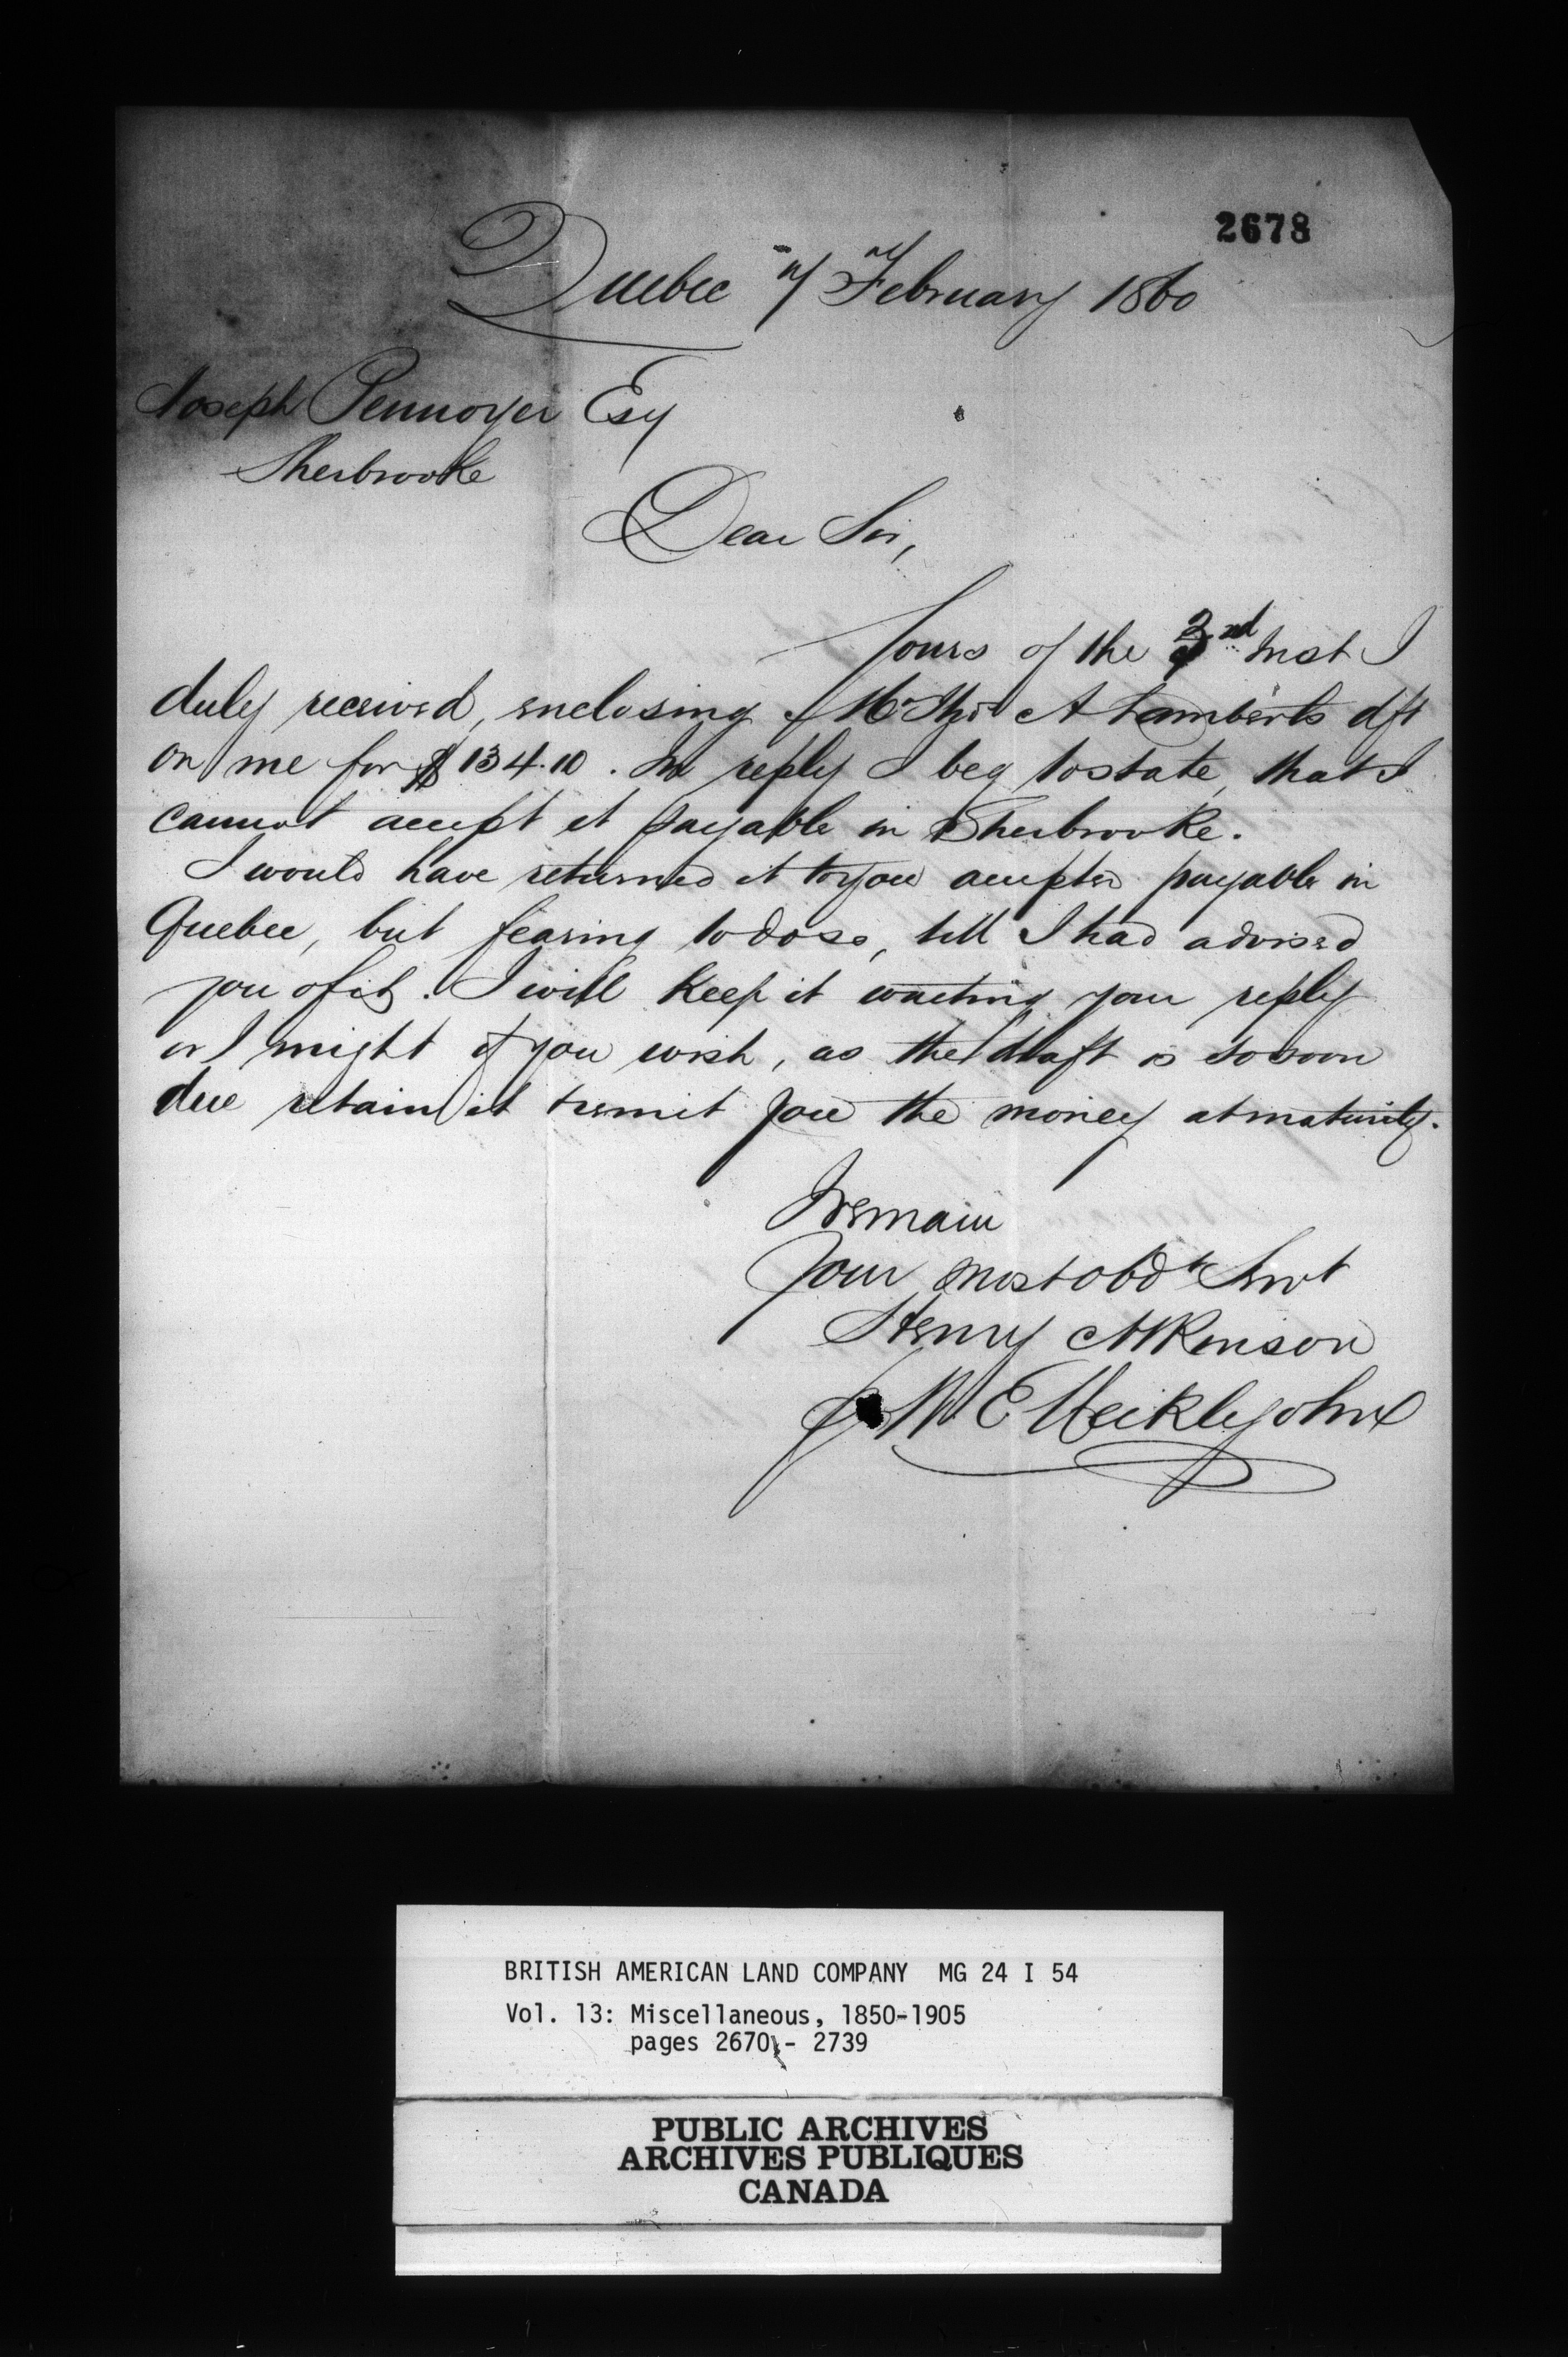 2678
Quebec 7 February 1860
Joseph Pennoyer Esq
Sherbrooke
Dear Sir,
Yours of the 3rd Inst I
duly received, enclosing Mr A Lambert's dft
on me for $134.10. In reply I beg to state, that I
cannot accept it payable in Sherbrooke.
I would have returned it to you accepted payable in
Quebec, but fearing to do so, till I had advised
you of it. I will keep it waiting your reply
or I might if you wish, as the draft is so soon
due retain it & remit you the money at maturity.
I remain
Your most obdt Servt
Henry Atkinson
W E Meiklejohn
BRITISH AMERICAN LAND COMPANY MG 24 I 54
Vol. 13: Miscellaneous, 1850-1905
pages 2670 - 2739
PUBLIC ARCHIVES
ARCHIVES PUBLIQUES
CANADA